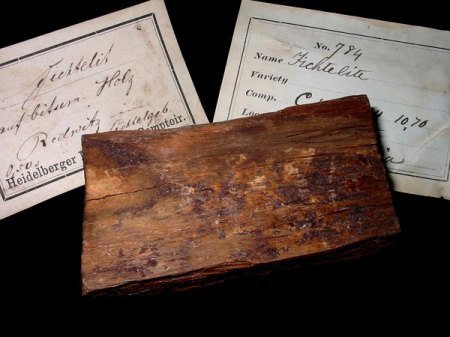 Fichtelit
auf bitum. Holz
Redwitz Fichtelgeb.
Heidelberger
Comptoir.
No. 784
Name Fichtelite
Variety
Comp. C
10,70